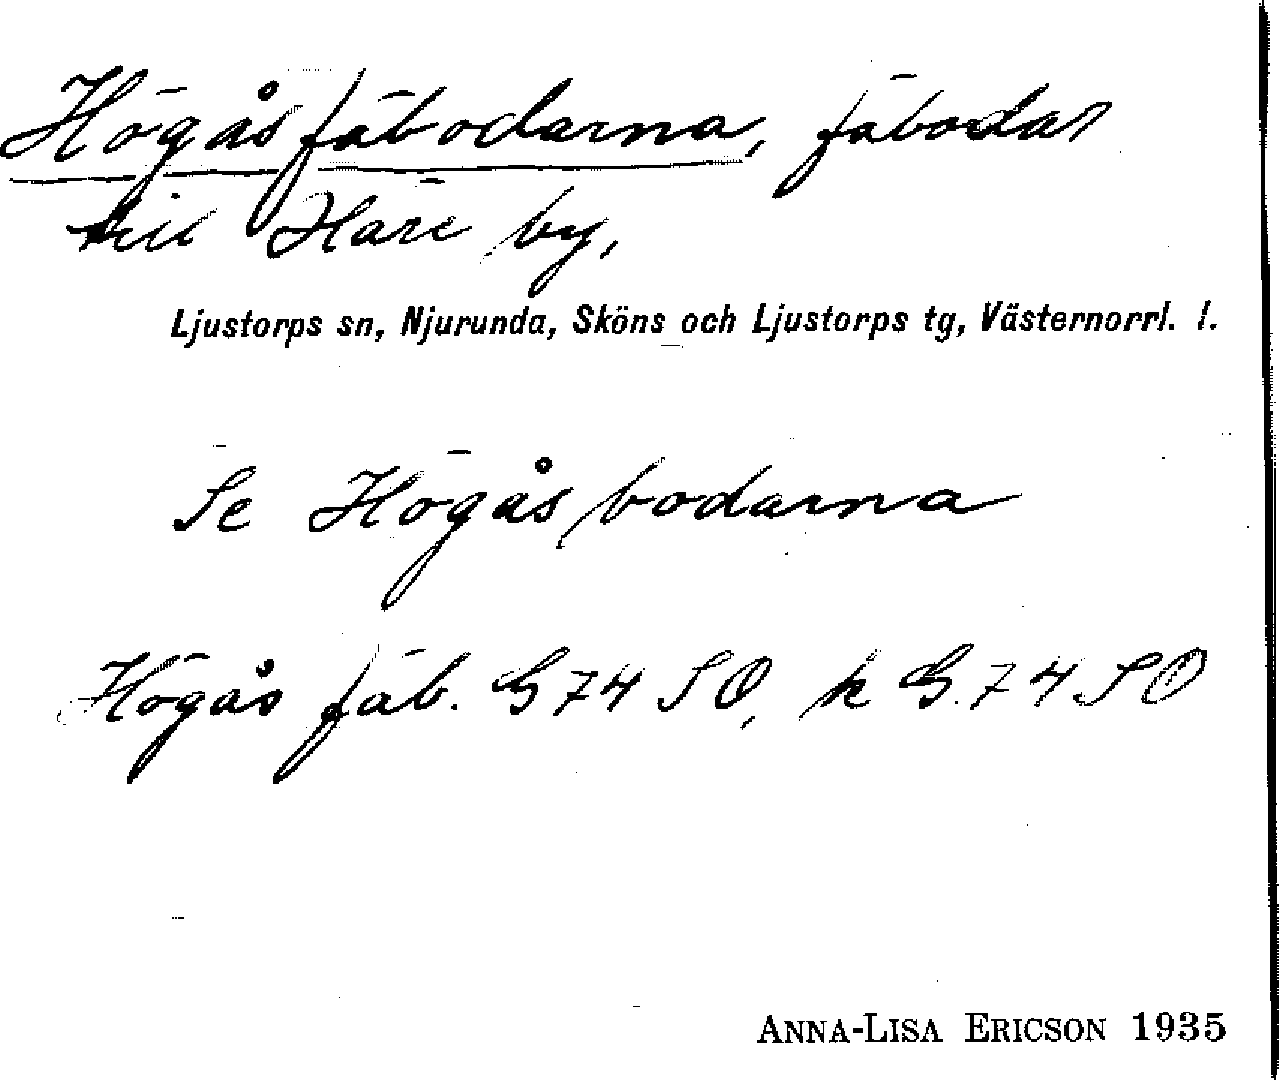 Högåsfäbodarna, fäbodar
till Häre by,
Ljustorps sn, Njurunda, Sköns och Ljustorps tg, Västernorrl. l.
Se Högåsbodarna
Högås fäb. G 74 SO, k G. 74 SO
ANNA-LISA ERICSON 1935